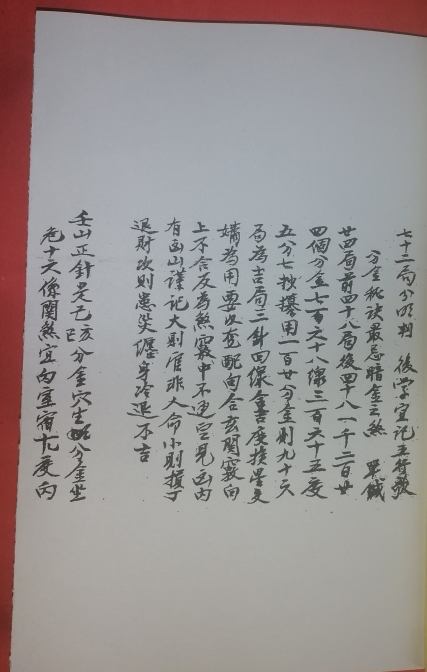 七十二局分明判　後學宜記五行歌
分金秘訣最忌暗金之煞　單鐵
廿四局前四十八局後四十八一千二百廿
四個分金七百六十八線三百六十五度
五分七抄擇用一百廿分金則九十六
局為吉局三針四線合吉度挨星爻
為用要次定配向合玄關竅向
上不合反為煞竅中不通宜見凶內
有凶謹記大則官非人命小則損丁
退財次則患災纏身冷退不吉
壬山正針是乙亥分金穴坐分金坐
危十六傷關煞宜向室宿九度丙